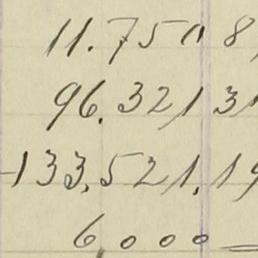 11.750 8
96.321 31
133.521.19
6000